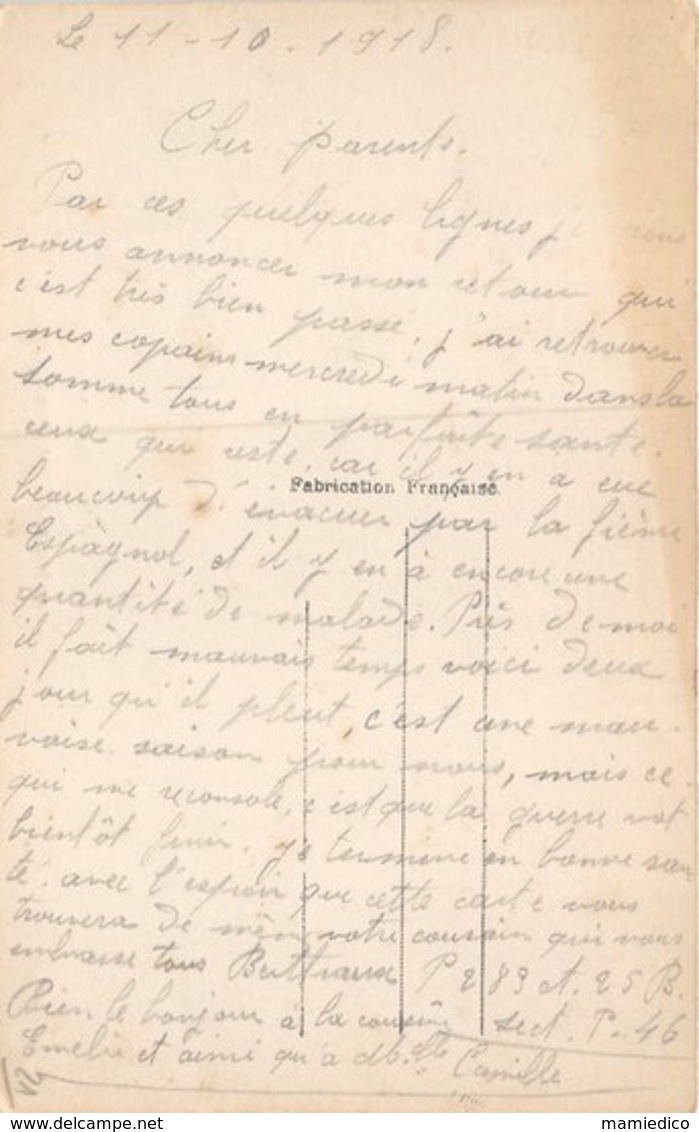 Le 11-10.1918.
Cher parents.
Par ces quelques lignes je viens
vous annoncer mon retour qui
c'est très bien passe, j'ai retrouver
mes copains mercredi matin dans la
somme tous en parfaite sante.
ceux qui reste, car il y en a eue
Fabrication Française.
beaucoup d'évacuer par la fièvre
Espagnol, et il y en à encore une
quantité de malade. Près de moi
il fait mauvais temps voici deux
jour qu'il pleut, c'est une mau-
vaise saison pour nous, mais ce
qui me reconsole, c'est que la guerre vat
bientôt finir. je termine en bonne san
té. avec l'espoir que cette carte vous
trouvera de même votre cousin qui vous
embrasse tous P 289 et. 25 B.
Bien le bonjour à la cousine sect. P. 46
Emelie et ainsi qu'a Camille
mamiedico